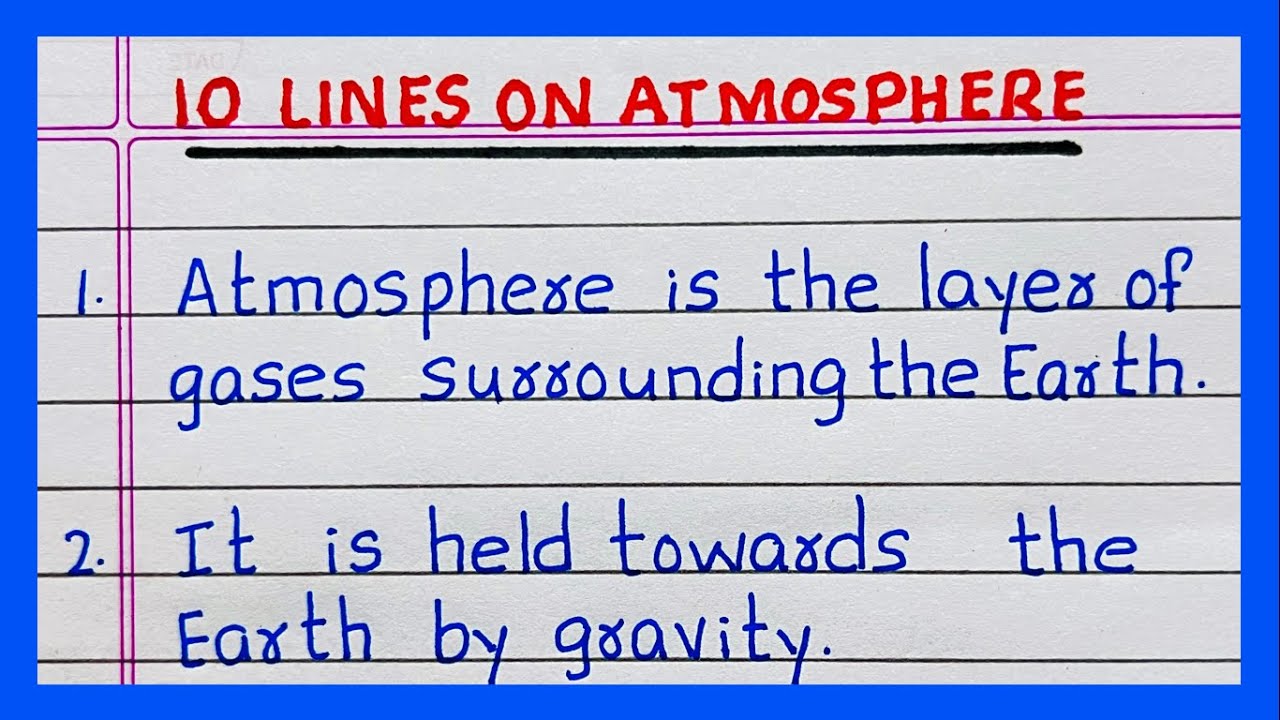 10 LINES ON ATMOSPHERE
1. Atmosphere is the layer of
gases surrounding the Earth.
2. It is held towards the
Earth by gravity.